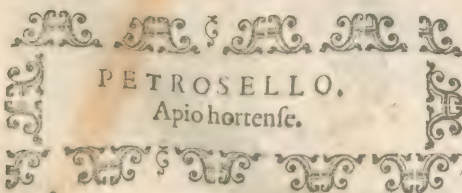 PETROSELLO.
Apio hortenſe.